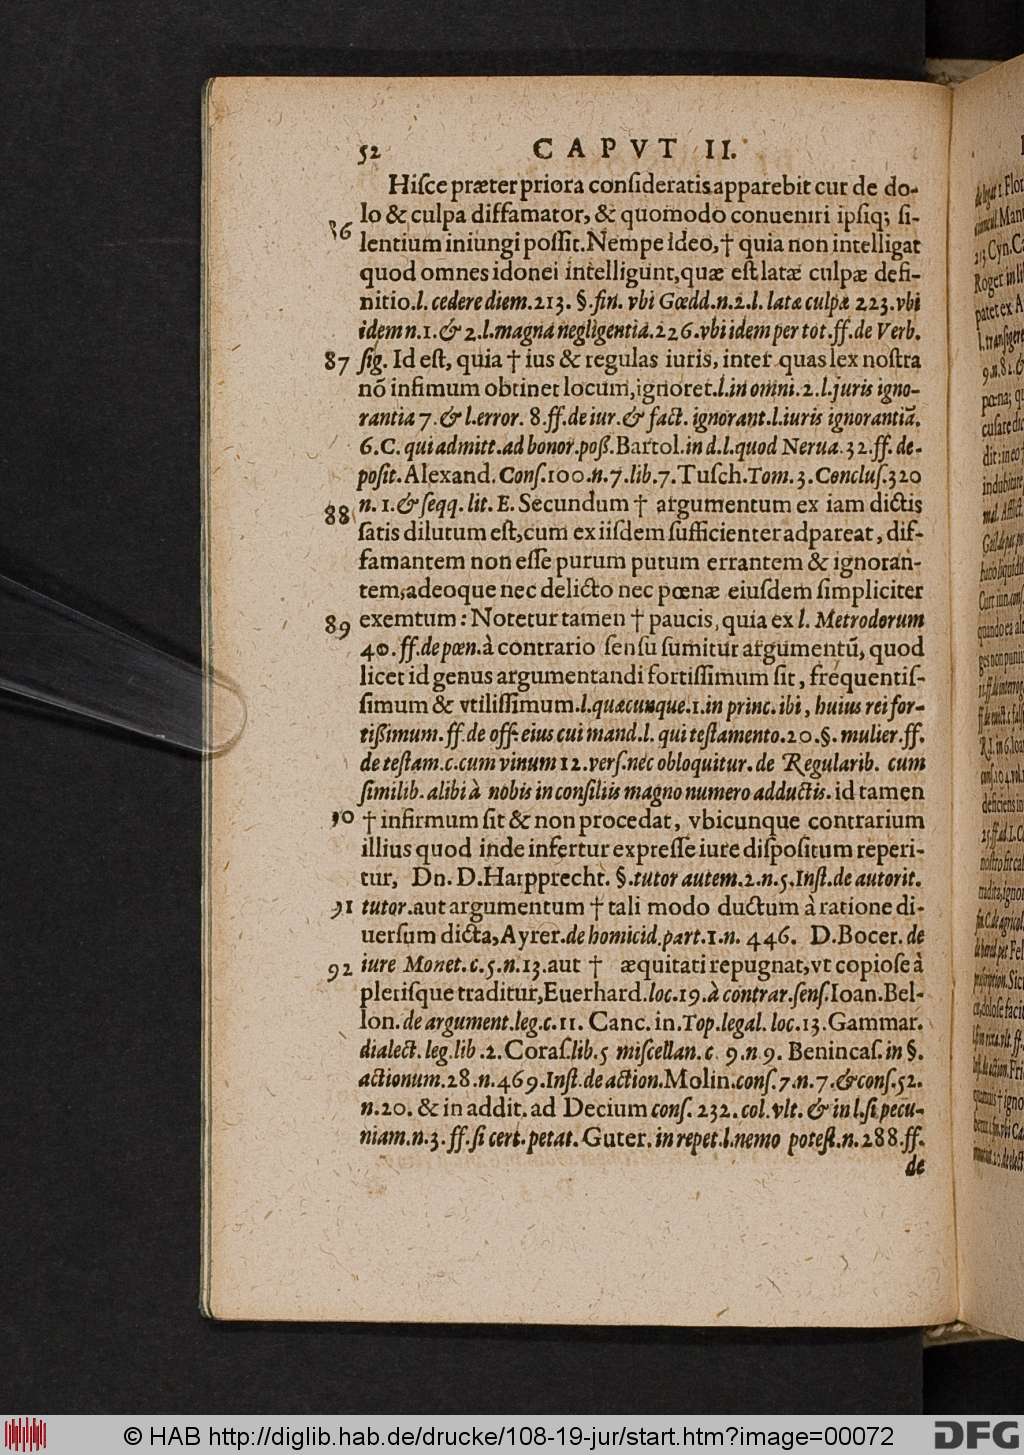 52 CAPVT II.
Hiſce præter priora conſideratis apparebit cur de do-
lo & culpa diffamator, & quomodo conueniri ipſiq; ſi-
86 lentium iniungi poſſit. Nempe ideo, † quia non intelligat
quod omnes idonei intelligunt, quæ eſt latæ culpæ defi-
nitio. l. cedere diem. 213. §. fin. vbi Gœdd. n. 2. l. lata culpa 223. vbi
idem n. 1. & 2. l. magna negligentia. 226. vbi idem per tot. ff. de Verb.
87 ſig. Id eſt, quia † ius & regulas iuris, inter quas lex noſtra
nō infimum obtinet locum, ignoret. l. in omni. 2. l. juris igno-
rantia 7. & l. error. 8. ff. de iur. & fact. ignorant. l. iuris ignorantiā.
6. C. qui admitt. ad bonor. poß. Bartol. in d. l. quod Nerua. 32. ff. de-
poſit. Alexand. Conſ. 100. n. 7. lib. 7. Tuſch. Tom. 3. Concluſ. 320
88 n. 1. & ſeqq. lit. E. Secundum † argumentum ex iam dictis
ſatis dilutum eſt, cum ex iiſdem ſufficienter adpareat, dif-
famantem non eſſe purum putum errantem & ignoran-
tem, adeoque nec delicto nec pœnæ eiuſdem ſimpliciter
89 exemtum: Notetur tamen † paucis, quia ex l. Metrodorum
40. ff. de pœn. à contrario ſenſu ſumitur argumentū, quod
licet id genus argumentandi fortiſſimum ſit, frequentiſ-
ſimum & vtiliſſimum. l. quæcunque. 1. in princ. ibi, huius rei for-
tißimum. ff. de off. eius cui mand. l. qui teſtamento. 20. §. mulier. ff.
de teſtam. c. cum vinum 12. verſ. nec obloquitur. de Regularib. cum
ſimilib. alibi à nobis in conſiliis magno numero adductis. id tamen
90 † infirmum ſit & non procedat, vbicunque contrarium
illius quod inde infertur expreſſe iure diſpoſitum reperi-
tur, Dn. D. Harpprecht. §. tutor autem. 2. n. 5. Inſt. de autorit.
91 tutor. aut argumentum † tali modo ductum à ratione di-
uerſum dicta, Ayrer. de homicid. part. 1. n. 446. D. Bocer. de
92 iure Monet. c. 5. n. 13. aut † æquitati repugnat, vt copioſe à
pleriſque traditur, Euerhard. loc. 19. à contrar. ſenſ. Ioan. Bel-
lon. de argument. leg. c. 11. Canc. in. Top. legal. loc. 13. Gammar.
dialect. leg. lib. 2. Coraſ. lib. 5 miſcellan. c. 9. n 9. Benincaſ. in §.
actionum. 28. n. 469. Inſt. de action. Molin. conſ. 7. n. 7. & conſ. 52.
n. 20. & in addit. ad Decium conſ. 232. col. vlt. & in l. ſi pecu-
niam. n. 3. ff. ſi cert. petat. Guter. in repet. l. nemo poteſt. n. 288. ff.
de
© HAB http://diglib.hab.de/drucke/108-19-jur/start.htm?image=00072
DFG